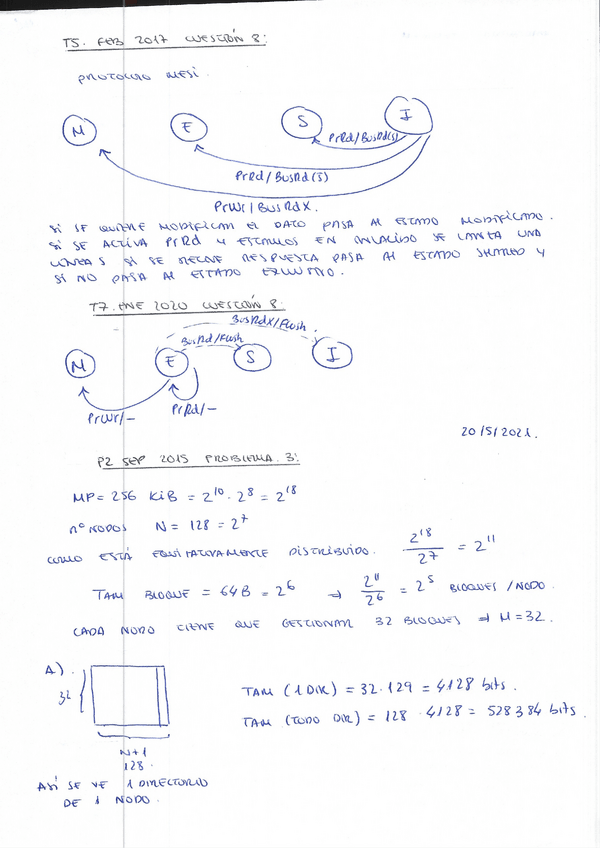 T5. FEB 2017 CUESTIÓN 8:
PROTOCOLO MESI.
M E S I
PrRd/BusRd(S)
PrRd/BusRd(S̅)
PrWr/BusRdX.
SI SE QUIERE MODIFICAR EL DATO PASA AL ESTADO MODIFICADO.
SI SE ACTIVA PrRd Y ESTAMOS EN INVALIDO SE LANZA UNA
LINEA S SI SE RECIBE RESPUESTA PASA AL ESTADO SHARED Y
SI NO PASA AL ESTADO EXCLUSIVO.
T7. ENE 2020 CUESTIÓN 8:
BusRdX/Flush.
BusRd/Flush
M E S I
PrWr/—
PrRd/—
20/5/2021.
P2 SEP 2015 PROBLEMA 3:
MP = 256 KiB = 2^10 · 2^8 = 2^18
nº NODOS N = 128 = 2^7
COMO ESTÁ EQUITATIVAMENTE DISTRIBUIDO. 2^18/2^7 = 2^11
TAM BLOQUE = 64B = 2^6 ⇒ 2^11/2^6 = 2^5 BLOQUES/NODO.
CADA NODO TIENE QUE GESTIONAR 32 BLOQUES ⇒ M = 32.
A).
32
TAM (1 DIR) = 32 · 129 = 4128 bits.
TAM (TODO DIR) = 128 · 4128 = 528384 bits.
N+1
128.
ASÍ SE VE 1 DIRECTORIO
DE 1 NODO.